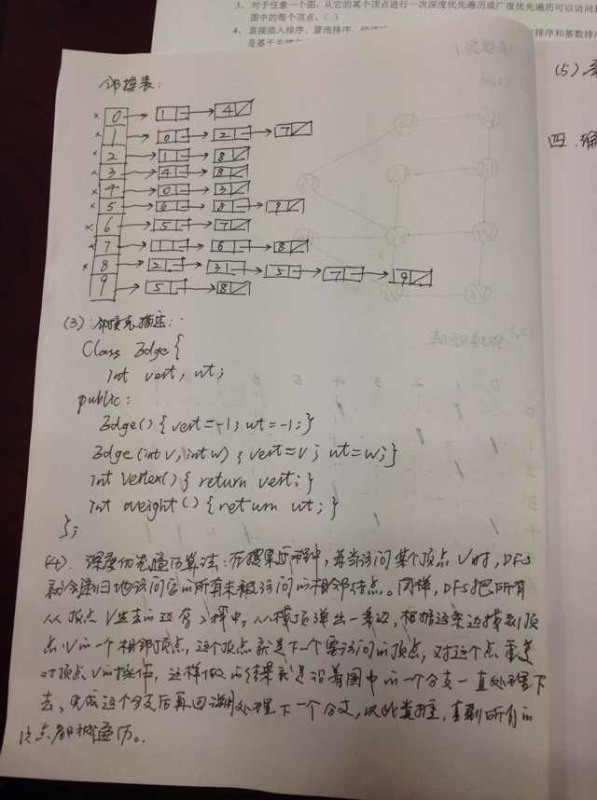 3、对于任意一个图,从它的某个顶点进行一次深度优先遍历或广度优先遍历可以访问
图中的每个顶点。( )
4、直接插入排序、冒泡排序、 排序和基数排
是基于
(5)
四.
邻接表:
× 0 → 1 → 4
× 1 → 0 → 2 → 7
× 2 → 1 → 8
× 3 → 4 → 8
× 4 → 0 → 3
× 5 → 6 → 8 → 9
× 6 → 5 → 7
× 7 → 1 → 6 → 8
× 8 → 2 → 3 → 5 → 7 → 9
9 → 5 → 8
(3):邻接表描述:
Class Edge{
int vert, wt;
public:
Edge(){vert=-1; wt=-1;}
Edge(int v,int w){vert=v; wt=w;}
int vertex(){return vert;}
int weight(){return wt;}
};
(4). 深度优先遍历算法:在搜索过程中,每当访问某个顶点V时,DFS
就会递归地访问它的所有未被访问的相邻结点。同样,DFS把所有
从顶点V出去的边存入栈中,从栈顶弹出一条边,根据这条边找到顶
点V的一个相邻顶点,这个顶点就是下一个要访问的顶点,对这个点重复
对顶点V的操作,这样做的结果就是沿着图中的一个分支一直处理下
去,完成这个分支后再回溯处理下一个分支,以此类推,直到所有的
结点都被遍历。